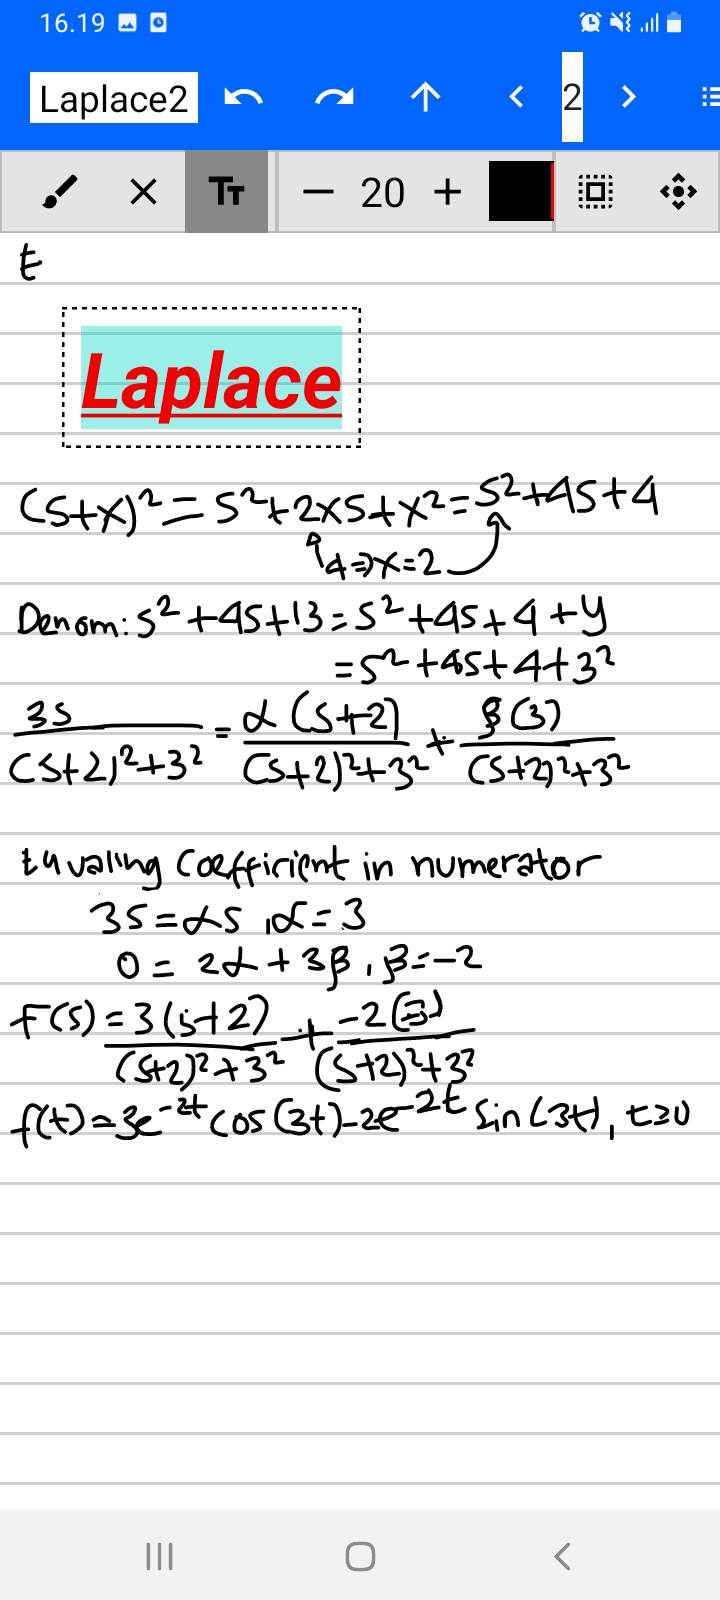 16.19
Laplace2 2
TT 20
t
Laplace
(s+x)²=s²+2xs+x²=s²+4s+4
4⇒x=2
Denom: s²+4s+13=s²+4s+4+y
=s²+4s+4+3²
3s/((s+2)²+3²) = α(s+2)/((s+2)²+3²) + β(3)/((s+2)²+3²)
Equaling coefficient in numerator
3s=αs, α=3
0=2α+3β, β=-2
F(s)=3(s+2)/((s+2)²+3²) + -2(3)/((s+2)²+3²)
f(t)=3e^-2t cos(3t)-2e^-2t sin(3t), t≥0